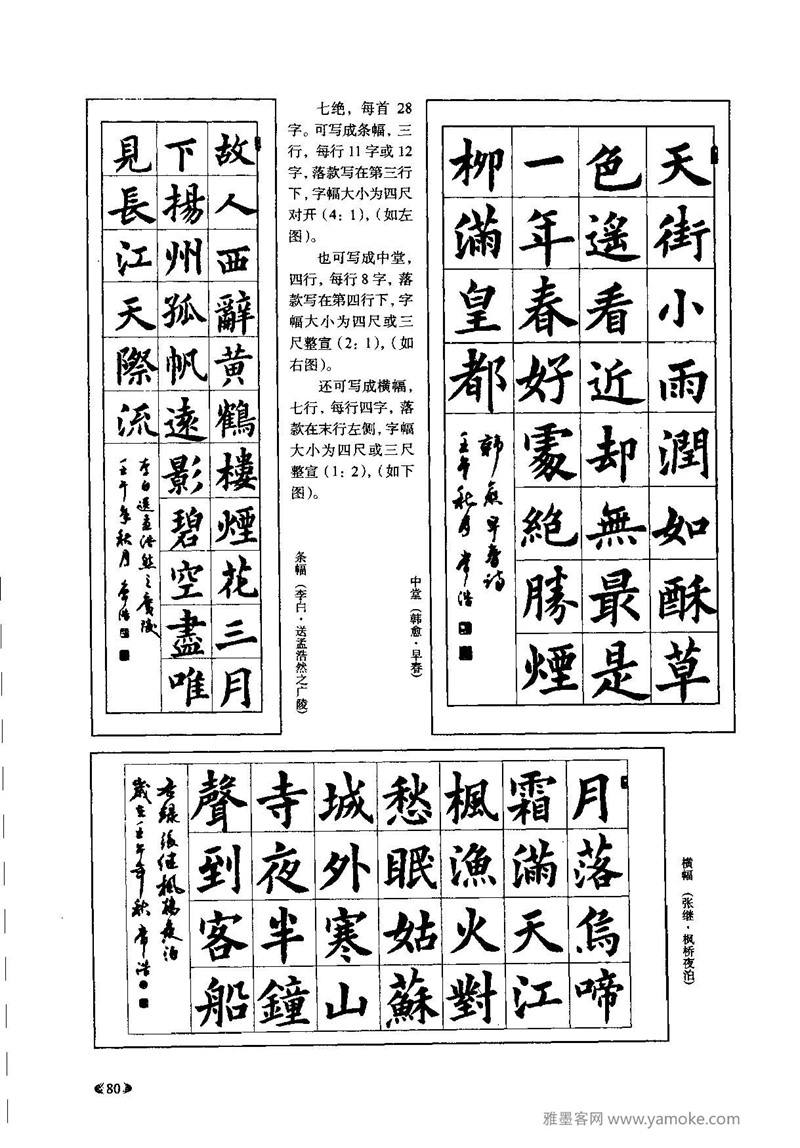 故人西辭黄鶴樓煙花三月
下揚州孤帆遠影碧空盡唯
見長江天際流
李白送孟浩然之廣陵
壬午年秋月 常浩
七绝，每首 28
字。可写成条幅，三
行，每行 11 字或 12
字，落款写在第三行
下，字幅大小为四尺
对开（4：1），（如左
图）。
也可写成中堂，
四行，每行 8 字，落
款写在第四行下，字
幅大小为四尺或三
尺整宣（2：1），（如
右图）。
还可写成横幅，
七行，每行四字，落
款在末行左侧，字幅
大小为四尺或三尺
整宣（1：2），（如下
图）。
条幅（李白·送孟浩然之广陵）
中堂（韩愈·早春）
天街小雨潤如酥草
色遥看近却無最是
一年春好處絕勝煙
柳滿皇都
韩愈早春詩
壬午秋月 常浩
月落烏啼
霜滿天江
楓漁火對
愁眠姑蘇
城外寒山
寺夜半鐘
聲到客船
右録張继楓橋夜泊
歲在壬午年秋 常浩
横幅（张继·枫桥夜泊）
80
雅墨客网 www.yamoke.com